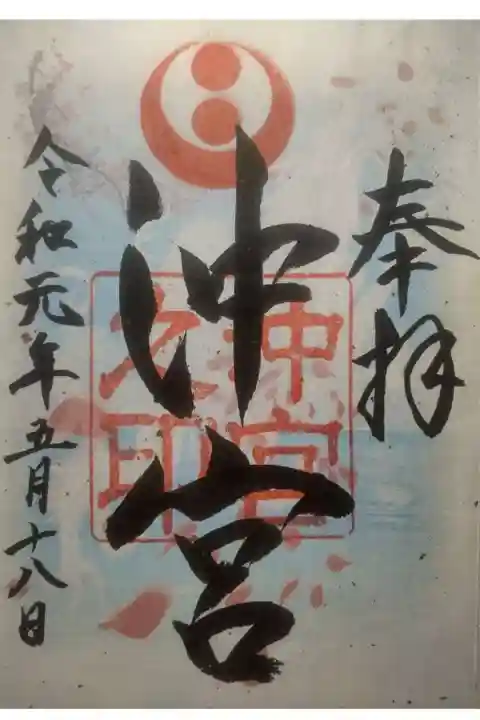 奉拝
沖宮
沖宮
之印
令和元年五月十八日